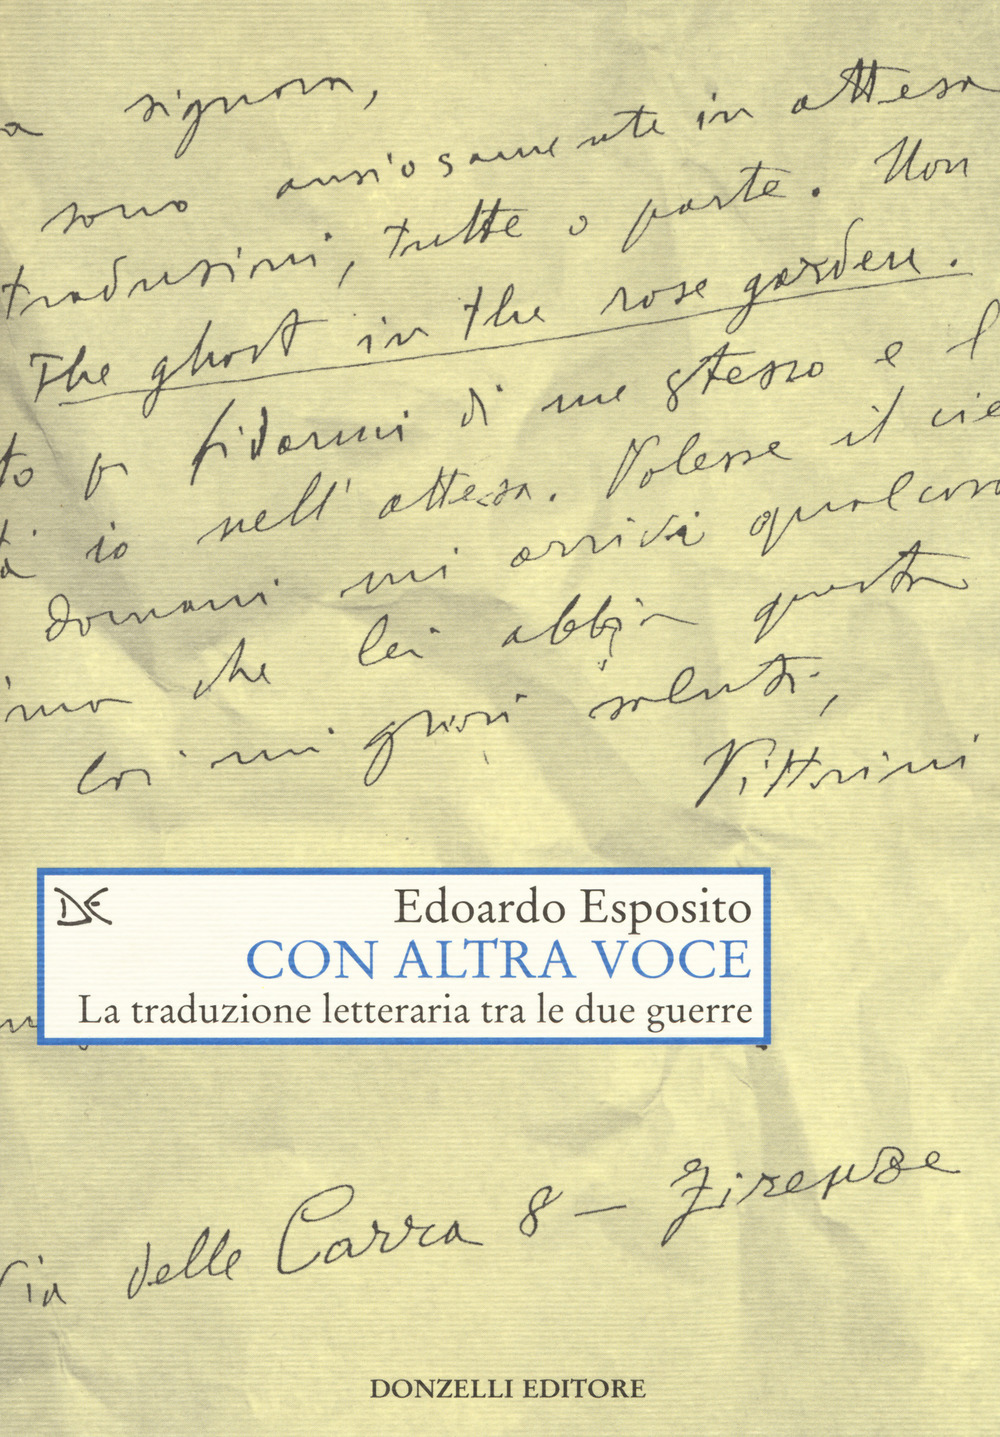 a signora,
sono ansiosamente in attesa
traduzioni, tutte o parte. Non
The ghost in the rose garden.
to fidarmi di me stesso e l
io nell'attesa. Volesse il cie
domani mi arrivi qualcosa
che lei abbia questa
migliori saluti,
Vittorini
DE
Edoardo Esposito
CON ALTRA VOCE
La traduzione letteraria tra le due guerre
Via delle Carra 8 – Firenze
DONZELLI EDITORE